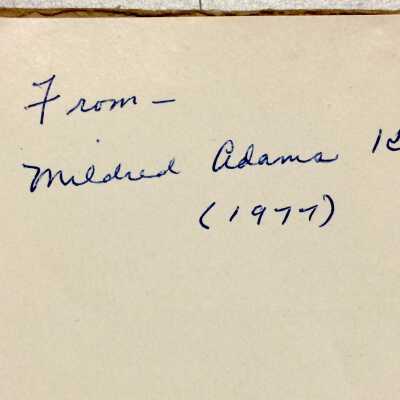 From —
Mildred Adams
(1977)